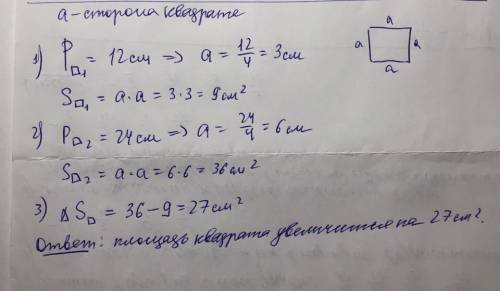 a - сторона квадрата
1) P□₁ = 12 см => a = 12/4 = 3 см
S□₁ = a · a = 3 · 3 = 9 см²
2) P□₂ = 24 см => a = 24/4 = 6 см
S□₂ = a · a = 6 · 6 = 36 см²
3) ΔS□ = 36 - 9 = 27 см²
Ответ: площадь квадрата увеличится на 27 см².
a
a a
a